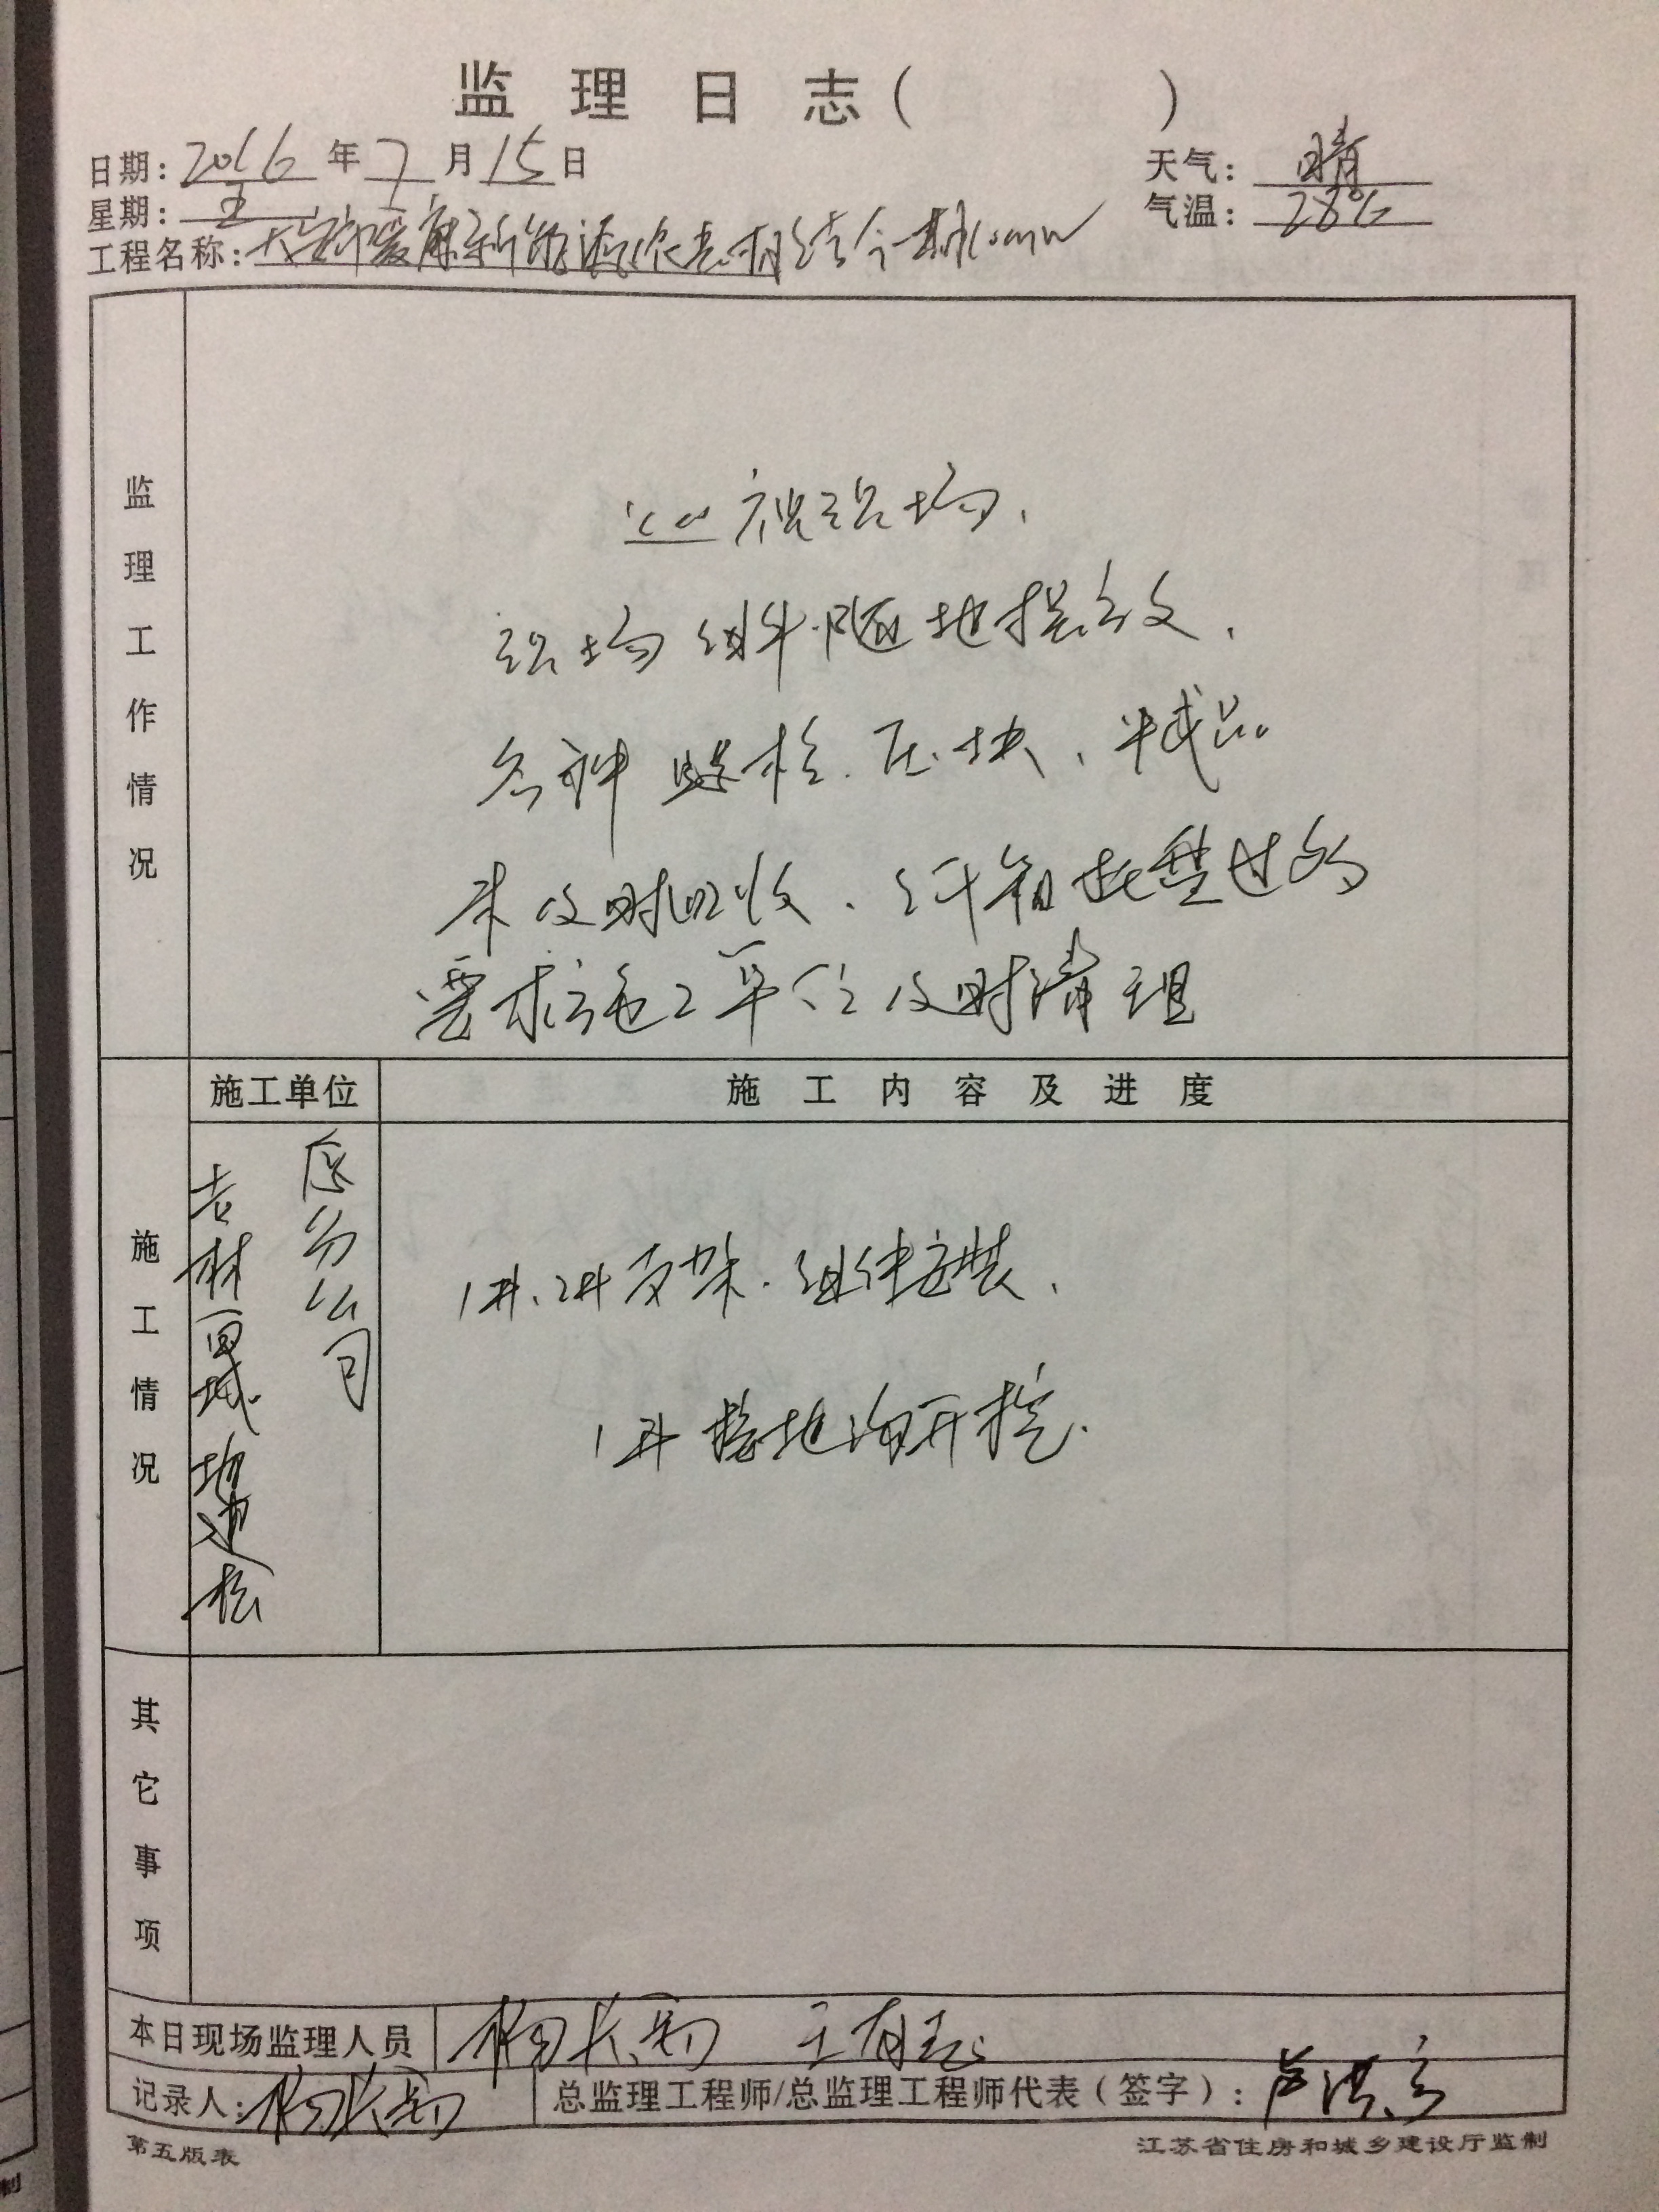 监理日志( )
日期: 2016 年 7 月 15 日
天气: 晴
星期: 五
气温: 28℃
工程名称: 大安市爱康新能源农光相结合一期10MW
监理工作情况
巡视现场、
现场组件随地摆放、
各种螺栓、压块、半成品
未及时回收、纸箱
要求施工单位及时清理
施工单位
施工内容及进度
施工情况
吉林
分公司
1#、2#支架、组件安装、
1#接地沟开挖.
其它事项
本日现场监理人员
记录人:
总监理工程师/总监理工程师代表(签字):
第五版表
江苏省住房和城乡建设厅监制